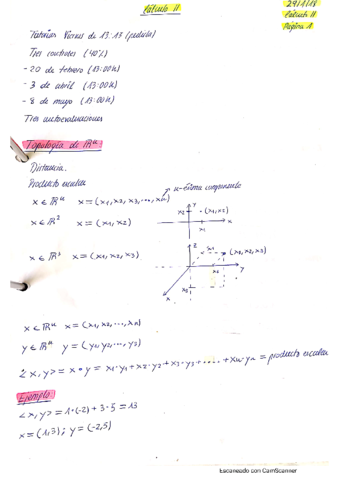 Cálculo II
29/1/18
Cálculo II
Página 1
Tutorías Viernes de 13:13 (pedirla)
Tres controles (40%)
- 20 de febrero (13:00h)
- 3 de abril (13:00h)
- 8 de mayo (13:00h)
Tres autoevaluaciones
Topología de ℝⁿ
Distancia.
Producto escalar
x ∈ ℝⁿ x = (x1, x2, x3, ..., xn) ↗ n-ésima componente
x ∈ ℝ² x = (x1, x2)
y
x2
(x1, x2)
x1
x
x ∈ ℝ³ x = (x1, x2, x3)
z
(x1, x2, x3)
y
x
x ∈ ℝⁿ x = (x1, x2, ..., xn)
y ∈ ℝⁿ y = (y1, y2, ..., y3)
< x, y > = x • y = x1·y1 + x2·y2 + x3·y3 + .... + xn·yn = producto escalar
Ejemplo
< x, y > = 1·(-2) + 3·5 = 13
x = (1,3) ; y = (-2,5)
Escaneado con CamScanner